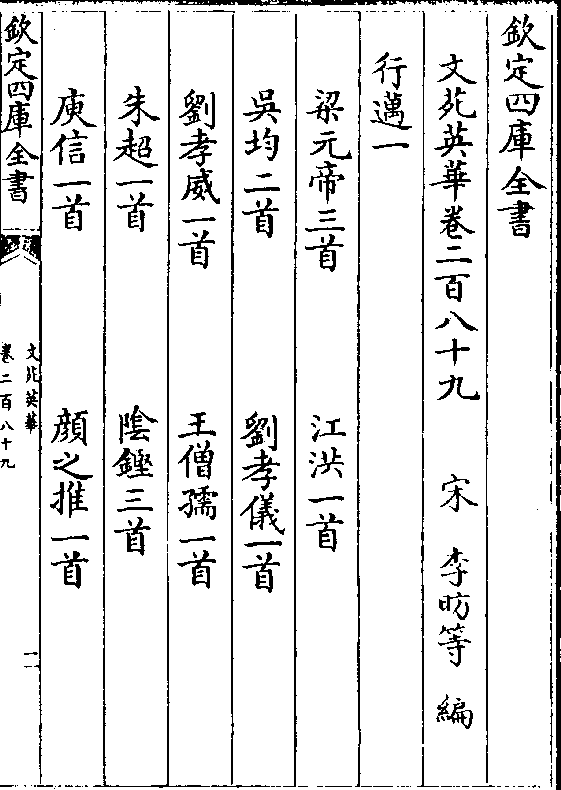 欽定四庫全書
文苑英華卷二百八十九 宋 李昉等 編
行邁一
梁元帝三首 江洪一首
吳均二首 劉孝儀一首
劉孝威一首 王僧孺一首
朱超一首 陰鏗三首
庾信一首 顔之推一首
欽定四庫全書
文苑英華
卷二百八十九